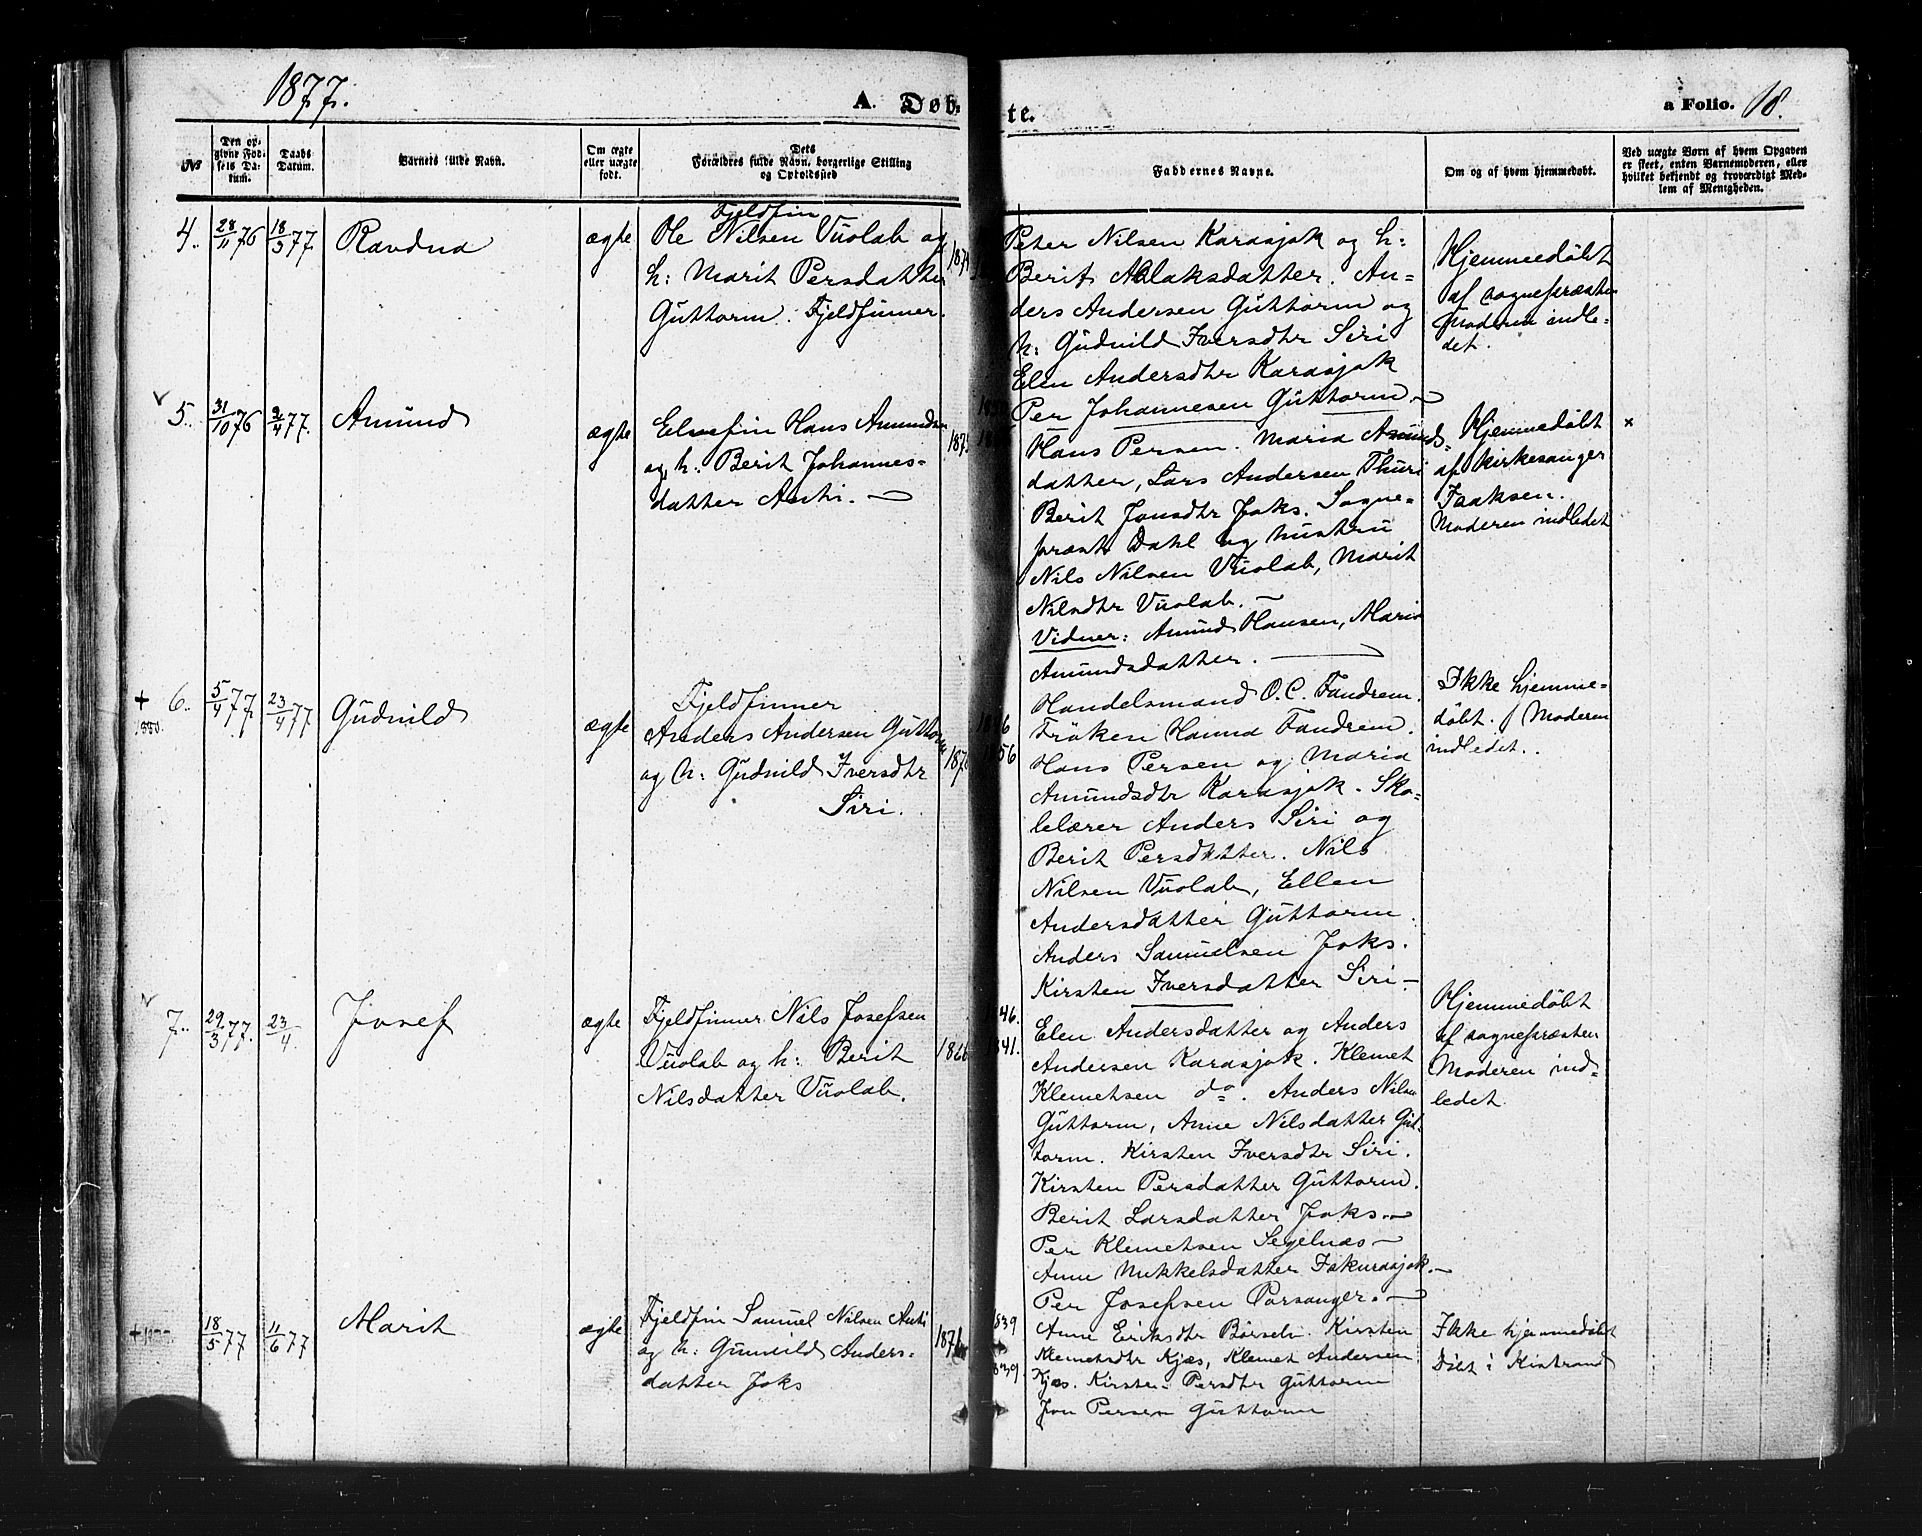 1877.
A. Døb-
te.
a Folio. 18.
No
Den op-
givne Fød-
sels Da-
tum.
Daabs
Datum.
Barnets fulde Navn.
Om ægte
eller uægte
født.
Dets
Forældres fulde Navn, borgerlige Stilling
og Opholdssted
Faddernes Navne.
Om og af hvem hjemmedøbt.
Ved uægte Børn af hvem Opgaven
er skeet, enten Barnemoderen, eller
hvilket bekjendt og troværdigt Med-
lem af Menigheden.
4. 28/11 76 18/3 77. Ravdna ægte
Fjeldfin
Ole Nilsen Vuolab og
h: Marit Persdatter
Guttorm. Fjeldfinner.
Peter Nilsen Karasjok og h:
Berit Aslaksdatter. An-
ders Andersen Guttorm og
h: Gudnild Iversdtr Siri
Elen Andersdtr Karasjok
Per Johannesen Guttorm.
Hjemmedøbt
af sognepræsten
Moderen indle-
det.
5. 31/10 76 2/4 77. Amund ægte
Elvefin Hans Amundsen
og h: Berit Johannes-
datter Anti.
Hans Persen. Maria Amunds-
datter, Lars Andersen Thuri
Berit Jonsdtr Joks. Sogne-
præst Dahl og hustru
Nils Nilsen Vuolab, Marit
Nilsdtr Vuolab.
Vidner: Amund Hansen, Maria
Amundsdatter.
Hjemmedøbt ×
af kirkesanger
Isaksen.
Moderen indledet
+ 1880. 6. 5/4 77. 23/4 77 Gudnild ægte
Fjeldfinner
Anders Andersen Guttorm
og h: Gudnild Iversdtr
Siri.
Handelsmand O.C. Fandrem.
Frøken Hanna Fandrem.
Hans Persen og Maria
Amundsdtr Karasjok. Sko-
lelærer Anders Siri og
Berit Persdatter. Nils
Nilsen Vuolab, Ellen
Andersdatter Guttorm.
Anders Samuelsen Joks.
Kirsten Iversdatter Siri-
Ikke hjemme-
døbt. Moderen
indledet.
7. 29/3 77. 23/4 Josef ægte
Fjeldfinner Nils Josefsen
Vuolab og h: Berit
Nilsdatter Vuolab.
1866
46.
841.
Elen Andersdatter og Anders
Andersen Karasjok. Klemet
Klemetsen do. Anders Nilsen
Guttorm, Anne Nilsdatter Gut-
torm. Kirsten Iversdtr Siri.
Kirsten Persdatter Guttorm.
Berit Larsdatter Joks.-
Per Klemetsen Segelnæs-
Anne Mikkelsdatter
Per Josefsen Porsanger.-
Hjemmedøbt
af sognepræsten
Moderen ind-
ledet
18/5 77 11/6 77 Marit ægte
Fjeldfin Samuel Nilsen Anti
og h: Gunnild Anders-
datter Joks
839
839
Anne Eriksdtr Børselv. Kirsten
Klemetsdtr Kjæs, Klemet Andersen
Kjæs. Kirsten Persdtr Guttorm
Jon Persen Guttorm
Ikke hjemmedøbt
Døbt i Kistrand